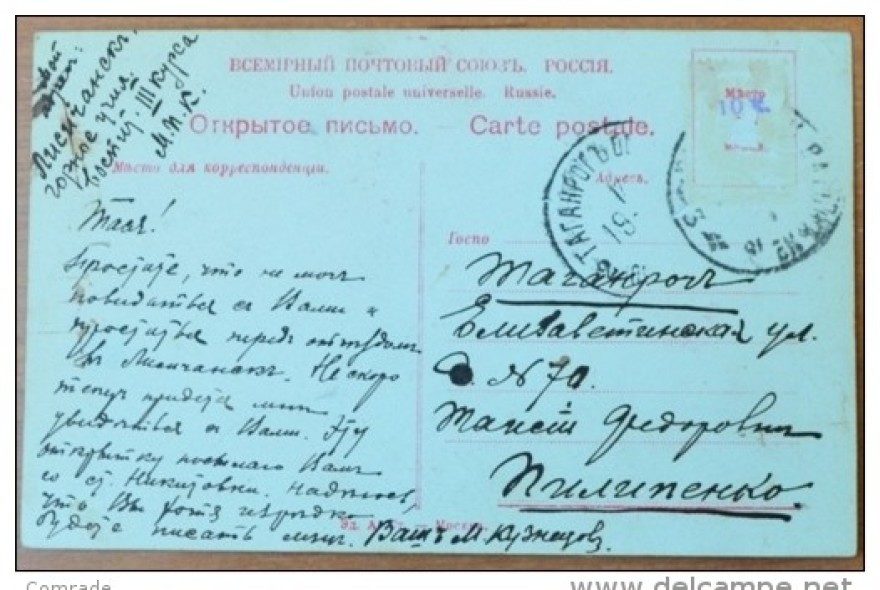 ВСЕМІРНЫЙ ПОЧТОВЫЙ СОЮЗЪ. РОССІЯ.
Union postale universelle. Russie.
Открытое письмо. — Carte postale.
Мѣсто для корреспонденціи.
Адресъ.
Мѣсто
марки.
10 к
Лисичанскъ.
горное учил.
III курса
М. П. К.
Тася!
Простите, что не могъ
повидаться съ Вами и
проститься передъ отъѣздомъ
въ Лисичанскъ. Не скоро
теперь придется мнѣ
увидѣться съ Вами. Эту
открытку посылаю Вамъ
со ст. Никитовки. Надѣюсь,
что Вы хотя изрѣдко
будете писать мнѣ. Вашъ М. Кузнецов.
Госпо
Таганрогъ
Елизаветинская ул.
Д. № 70.
Таисіи Федоровнѣ
Пилипенко.
ТАГАНРОГЪ
Москва.
Comrade
www.delcampe.net